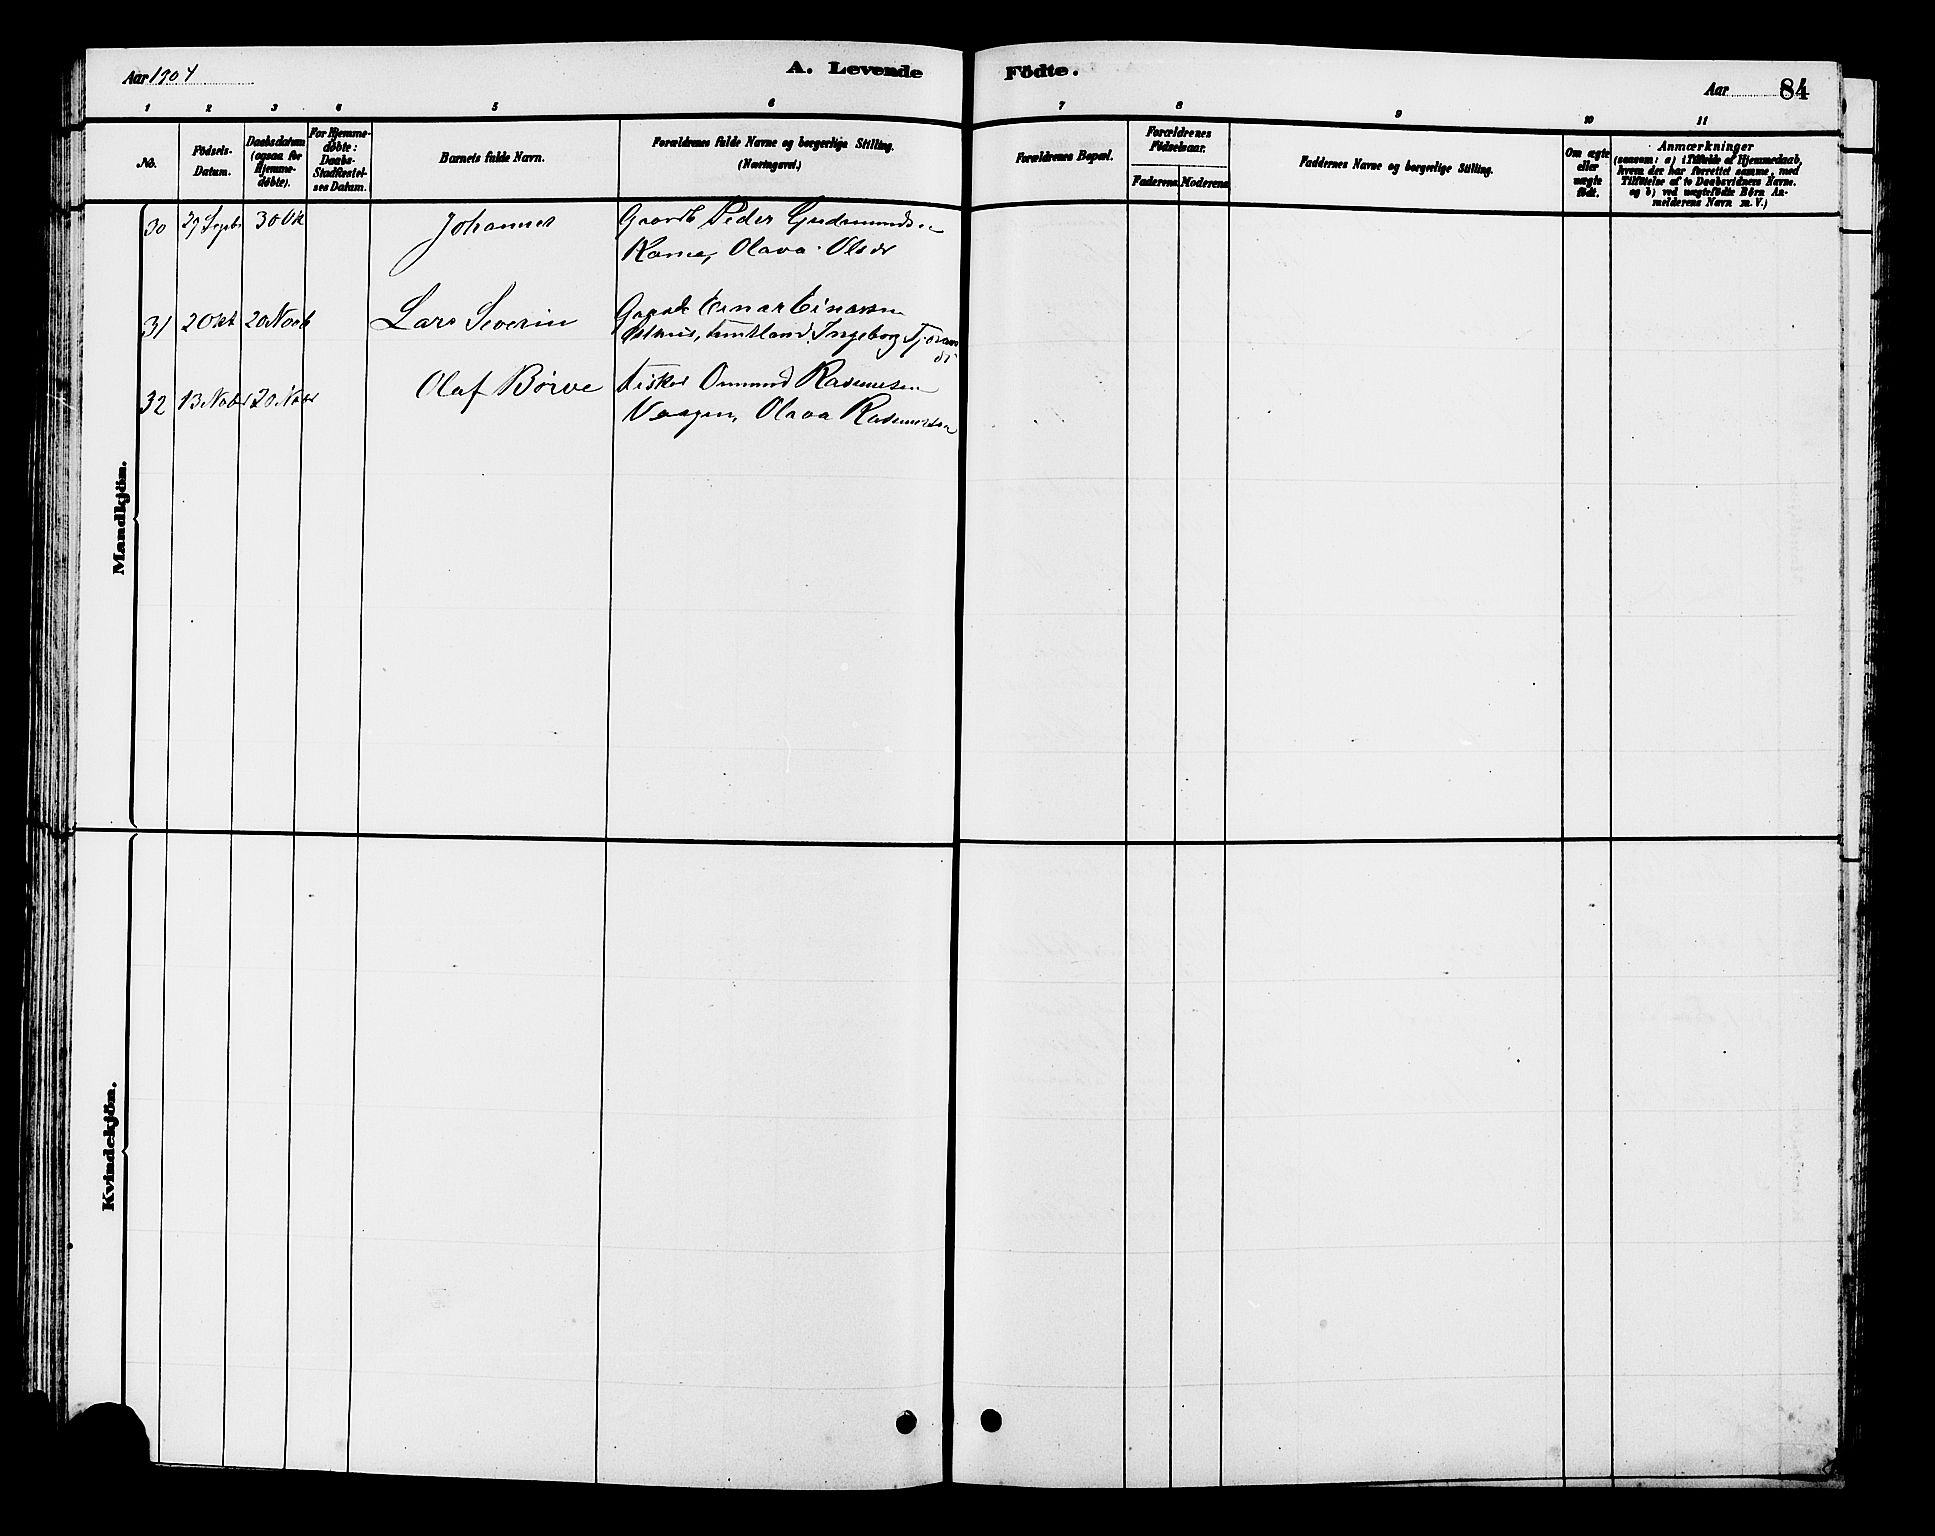 Aar 1904
A. Levende Födte.
Aar 84
1 2 3 4 5 6 7 8 9 10 11
No.
Födsels-Datum.
Daabsdatum (ogsaa for Hjemme-døbte).
For Hjemme-døbte: Daabs-Stadfæstelses Datum.
Barnets fulde Navn.
Forældrenes fulde Navne og borgerlige Stilling. (Næringsvei.)
Forældrenes Bopæl.
Forældrenes Födselsaar.
Faderens. Moderens.
Faddernes Navne og borgerlige Stilling.
Om ægte eller uægte födt.
Anmærkninger
(saasom: a) i Tilfælde af Hjemmedaab, hvem der har forrettet samme, med Tilföielse af to Daabsvidners Navne. og b) ved uægtefödte Børn Anmelderens Navn m. V.)
Mandkjön.
30 29 Septr 30 Ok Johannes Gaardb Peder Gudmundsen
Olava Olsdr
31 2 Okt 20 Novb Lars Severin Einar Einarsen
Ingeborg
32 13 Nobr 20 Nobr Olaf Börve Fisker Osmund Rasmusen
Vaagen, Olava Rasmusdr
Kvindekjön.